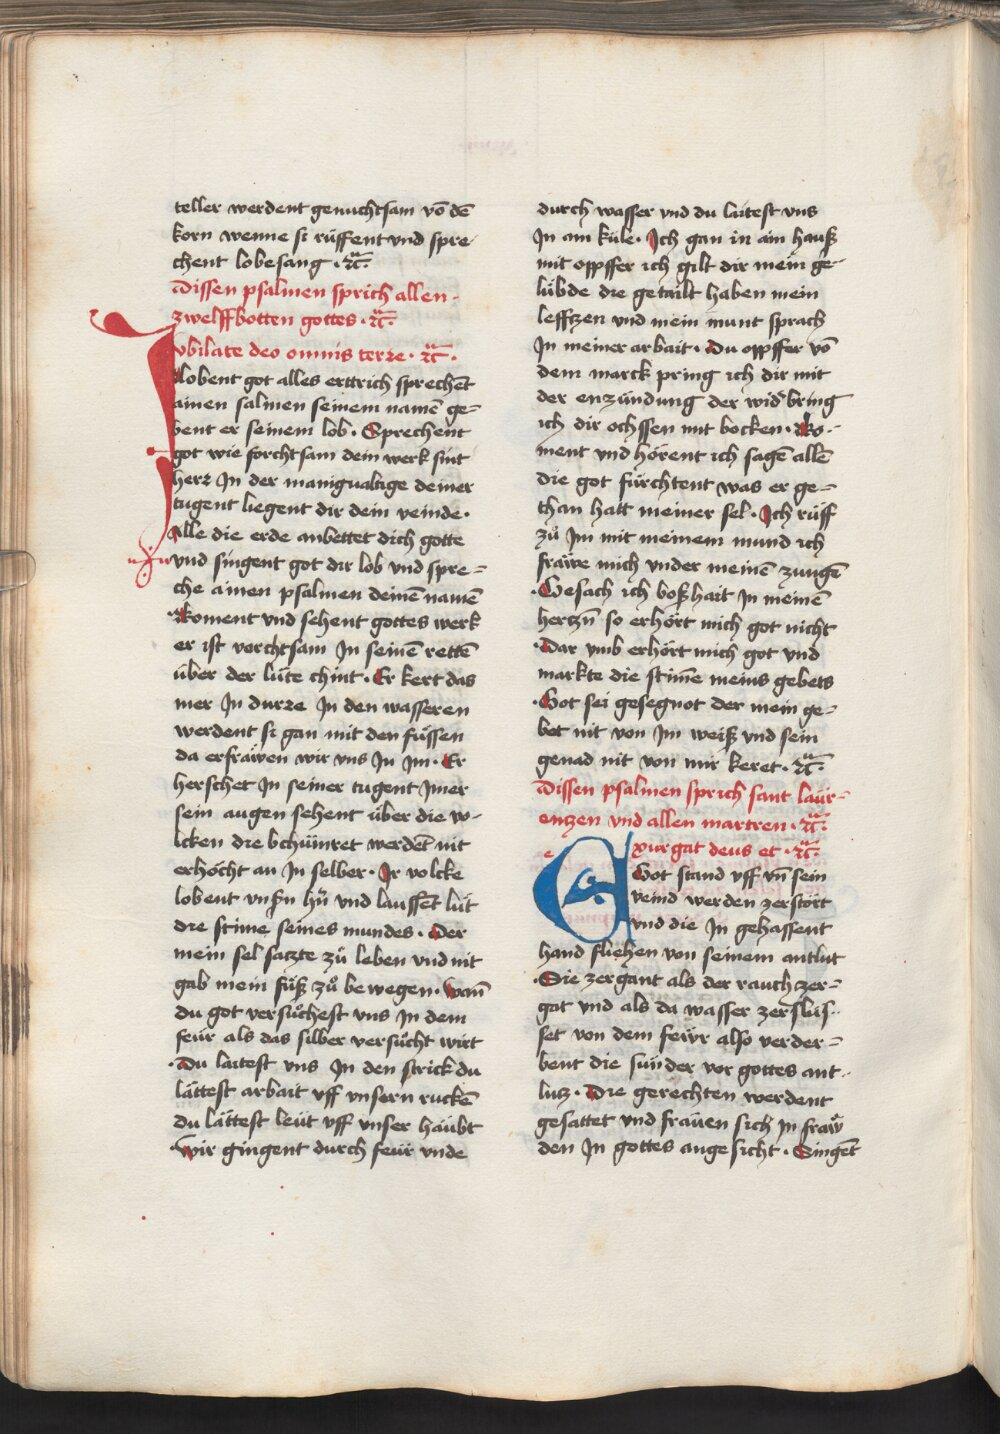 teller werdent genuchtsam vō dē
korn wenne si rüffent vnd spre-
chent lobesang · ꝛc̄ ·
Dissen psalmen sprich allen-
zwelffbotten gottes · ꝛc̄ ·
Jvbilate deo omnis terre · ꝛc̄ ·
lobent got alles ertrich sprechēt
ainen salmen seinem namē ge=
bent er seinem lob · Sprechent
got wie forchtsam dem werk sint
herr Jn der manigualtige deiner
tugent liegent dir dein veinde ·
Alle die erde anbettet dich gotte
vnd singent got dir lob vnd spre=
che ainen psalmen deinē namē
· Koment vnd sehent gottes werk
er ist vorchtsam Jn seinē rettē
über der lüte chint · Er kert das
mer Jn durre Jn den wasseren
werdent si gan mit den füssen
da erfräwen wir vns Jn Jm · Er
herschet Jn seiner tugent Jmer
sein augen sehent über die vo-
lcken die bchümret werdēt nit
erhöcht an Jn selber · Jr volcke
lobent vnsn hr̄ vnd laussēt lüt
die stime seines mundes · Der
mein sel satzte zů leben vnd nit
gab mein füß zů bewegen · Wan̄
du got versůchest vns Jn dem
feür als das silber versůcht wirt
· Du laitest vns Jn den strick du
lättest arbait vff vnsern ruckē
du lättest leüt vff vnser haübt
· Wir gingent durch feür vnde
durch wasser vnd du laitest vns
Jn am küle · Jch gan in ain hauß
mit oppffer ich gilt dir mein ge-
lübde die getailt haben mein
lefftzen vnd mein munt sprach
Jn meiner arbait · Du oppffer vō
dem marck pring ich dir mit
der enzündung der wid' bring
ich dir ochssen mit bocken · Ko-
ment vnd hörent ich sagē allē
die got fürchtent was er ge=
than hatt meiner sel · Jch rüff
zů Jm mit meinem mund ich
fräwe mich vnder meinē zungē
· Gesach ich boßhait Jn meinē
hertzn̄ so erhört mich got nicht
· Dar vmb erhört mich got vnd
markte die stim̄e meins gebets
· Got sei gesegnot der mein ge=
bet nit von Jm weiß vnd sein
genad nit von mir keret · ꝛc̄ ·
Dissen psalmen sprich sant laür=
enzen vnd allen martren · ꝛc̄ ·
Exurgat deus et · ꝛc̄ ·
Got stand vff vn̄ sein
veind werden zerstört
vnd die Jn gehassent
hand fliehen von seinem antlut
· Sie zergant als der rauch zer=
gat vnd als da wasser zerflüs-
set von dem fewr also verder=
bent die sünder vor gottes ant-
lutz · Die gerechten werdent
gesattet vnd fräuen sich Jn fraẅ
den Jn gottes angesicht · Singēt